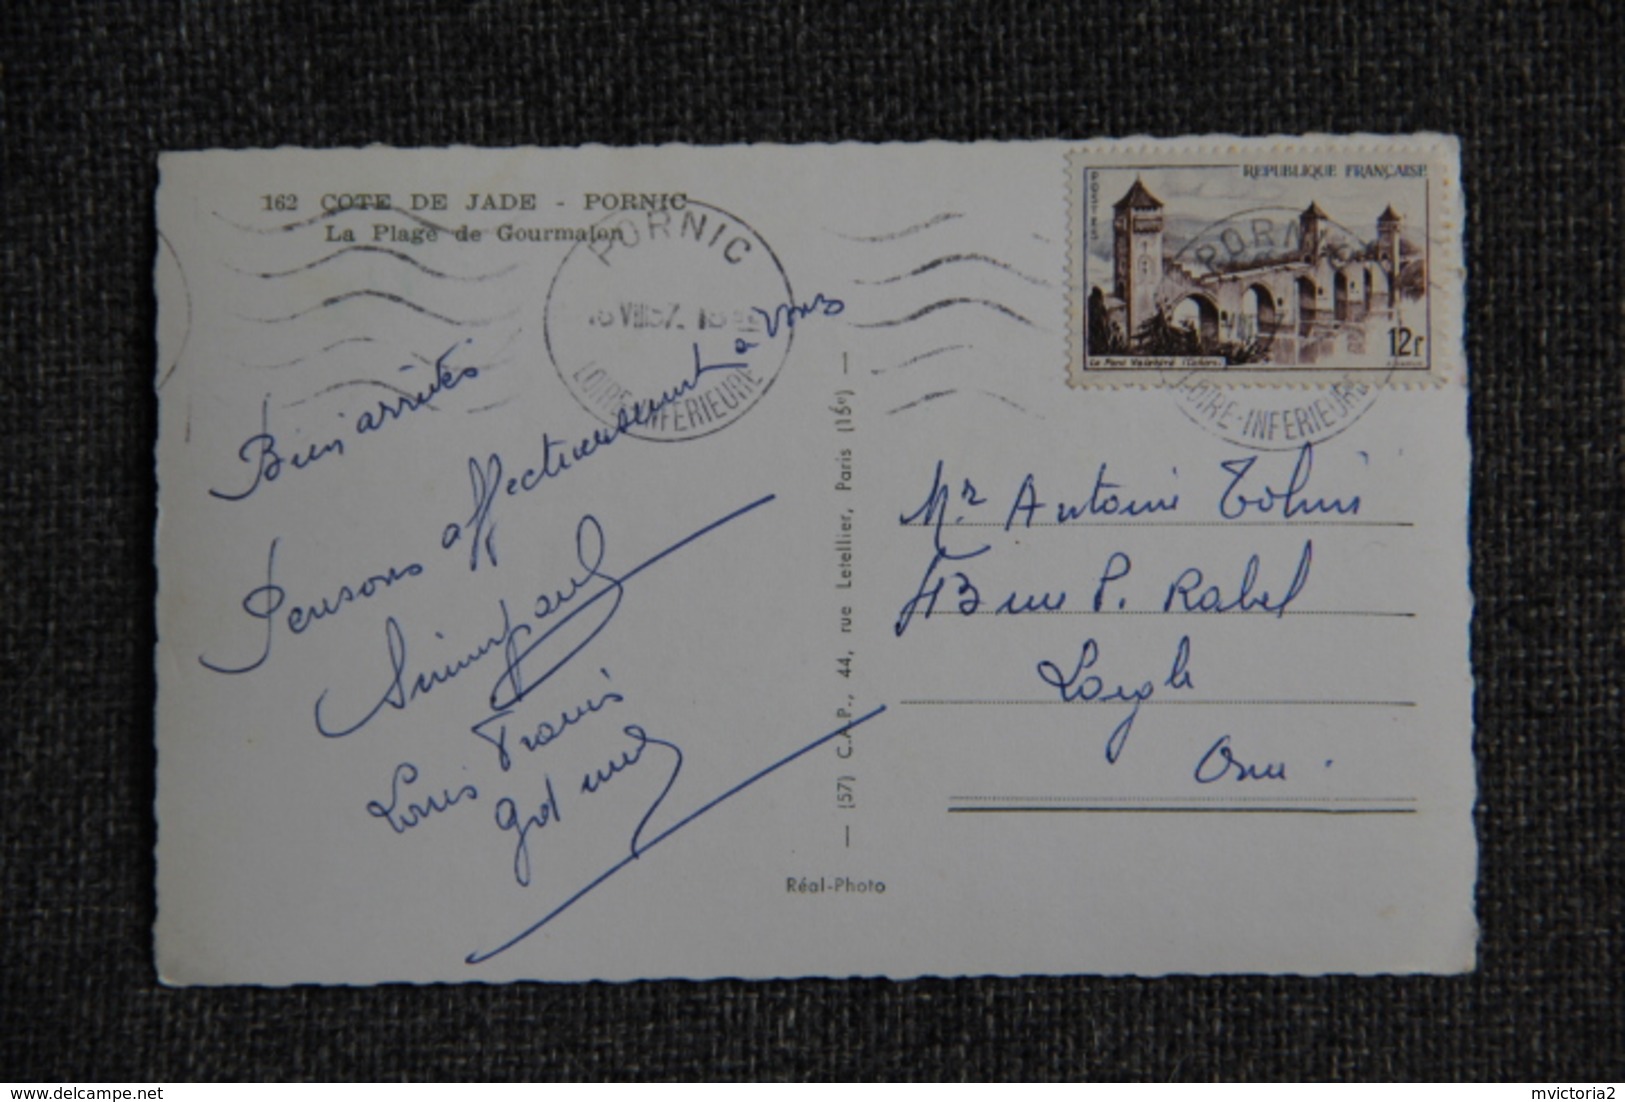 162 COTE DE JADE - PORNIC
La Plage de Gourmalon
PORNIC
VIII 57
LOIRE-INFERIEURE
Bien arrivés
Pensons affectueusement à vous
Louis
REPUBLIQUE FRANÇAISE
POSTES
Le Pont Valentré (Cahors)
12f
PORNIC
LOIRE-INFERIEURE
Mr Antoine
43 rue P. Rabel
Laigle
Orne.
(57) C.A.P., 44, rue Letellier, Paris (15e)
Réal-Photo
mvictoria2